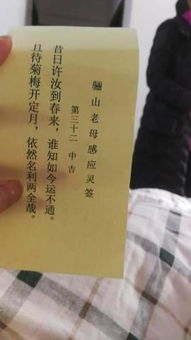 骊山老母感应灵签
第三十二 中吉
昔日许汝到春来，谁知如今运不通。
且待菊梅开定月，依然名利两全哉。